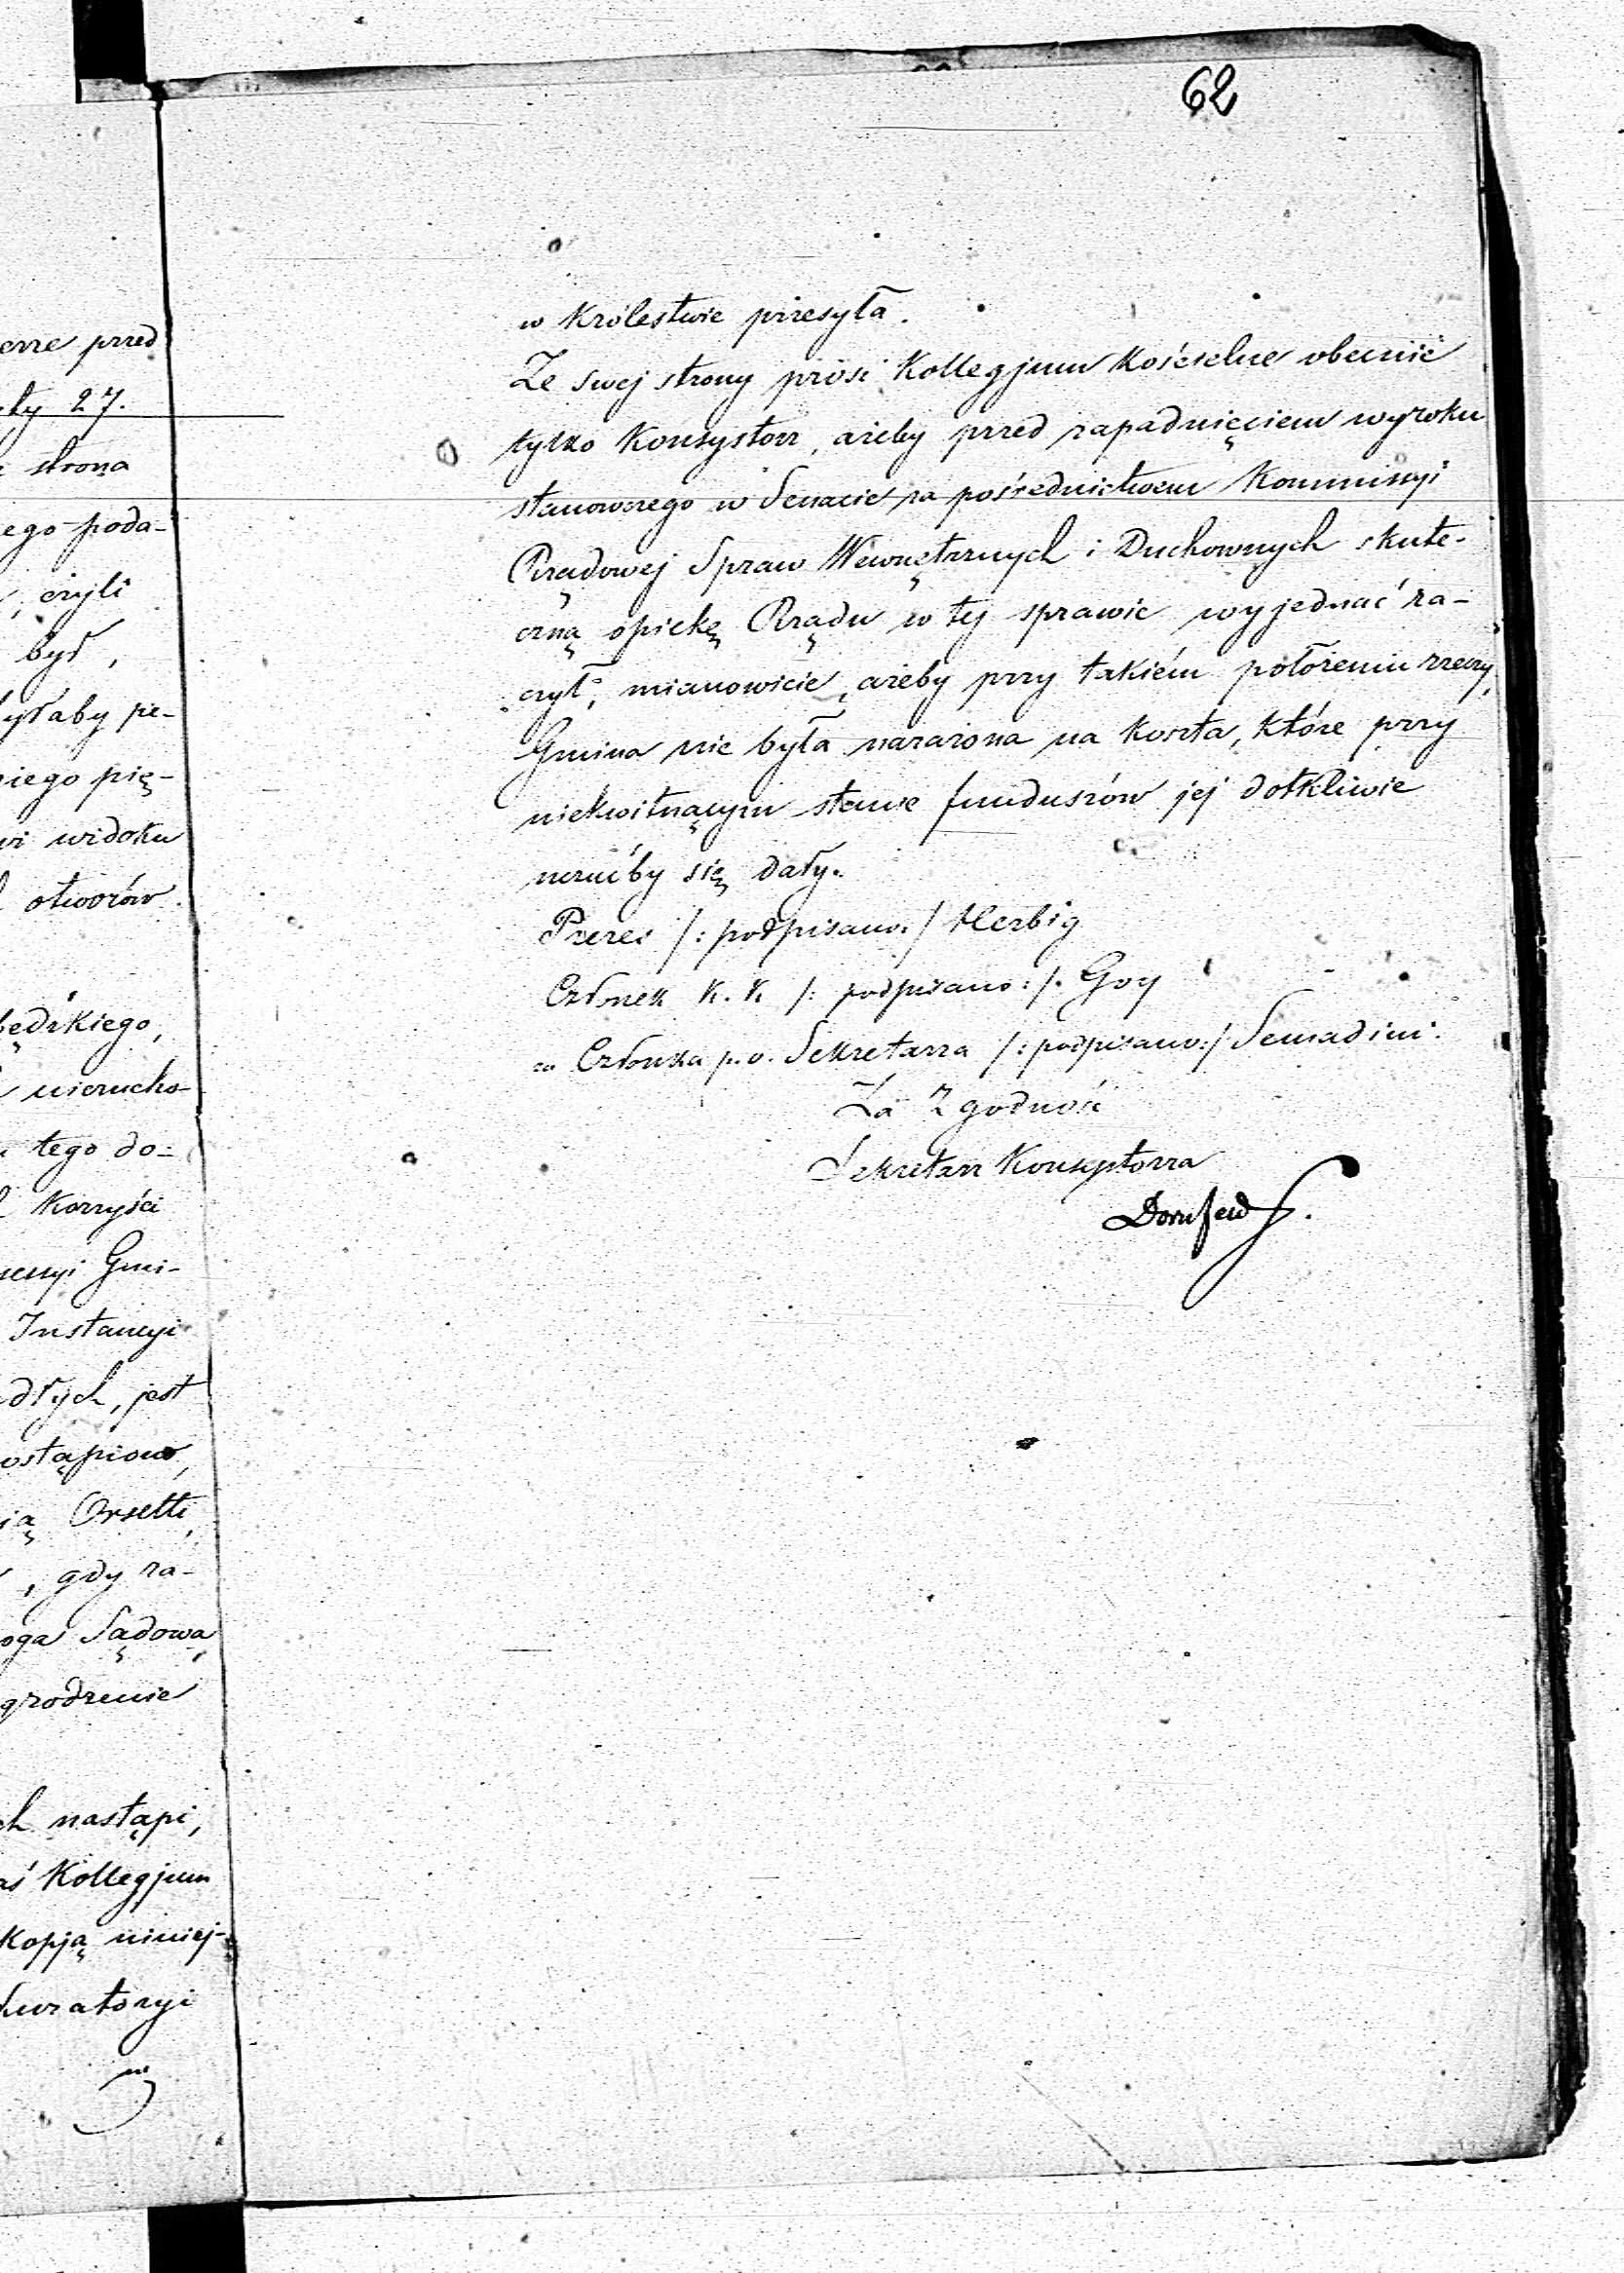 62
w Królestwie przesyła.
Ze swej strony prosi Kollegjum Kościelne obecnie
tylko Konsystorz, ażeby przed zapadnięciem wyroku
stanowczego w Senacie za pośrednictwem Kommissyi
Rządowej Spraw Wewnętrznych i Duchownych skute-
czną opiekę Rządu w tej sprawie wyjednać ra-
czył, mianowicie, ażeby przy takiém położeniu rzeczy,
Gmina nie była narażona na koszta, które przy
niekwitnącym stanie funduszów jej dotkliwie
uczućby się dały.
Prezes /: podpisano :/ Herbig
Członek K. K. /: podpisano :/. Goy
za Członka p. o. Sekretarza /: podpisano :/ Semadini.
Za Zgodność
Sekretarz Konsystorza
przed
27.
strona
ego poda-
czyli
był,
byłaby pe-
niego pię-
widoku
otworów.
nierucho-
tego do-
korzyści
Gmi-
Instancyi
jest
ostąpiono,
Orsetti,
, gdy za-
Sądowa
grodzenie
nastąpi,
Kollegjum
kopją niniej-
kuratoryi